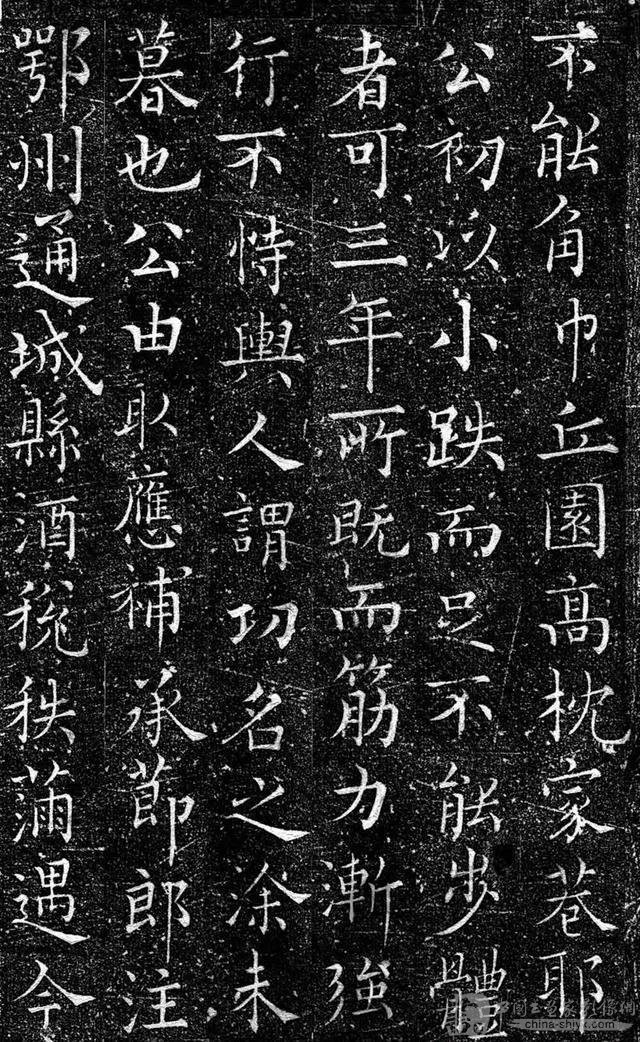 不能角巾丘園高枕家巷耶
公初以小跌而足不能步體
者可三年所既而筋力漸強
行不恃輿人謂功名之涂未
暮也公由取應補承節郎注
鄂州通城縣酒稅秩滿遇今
china-shiyk.com